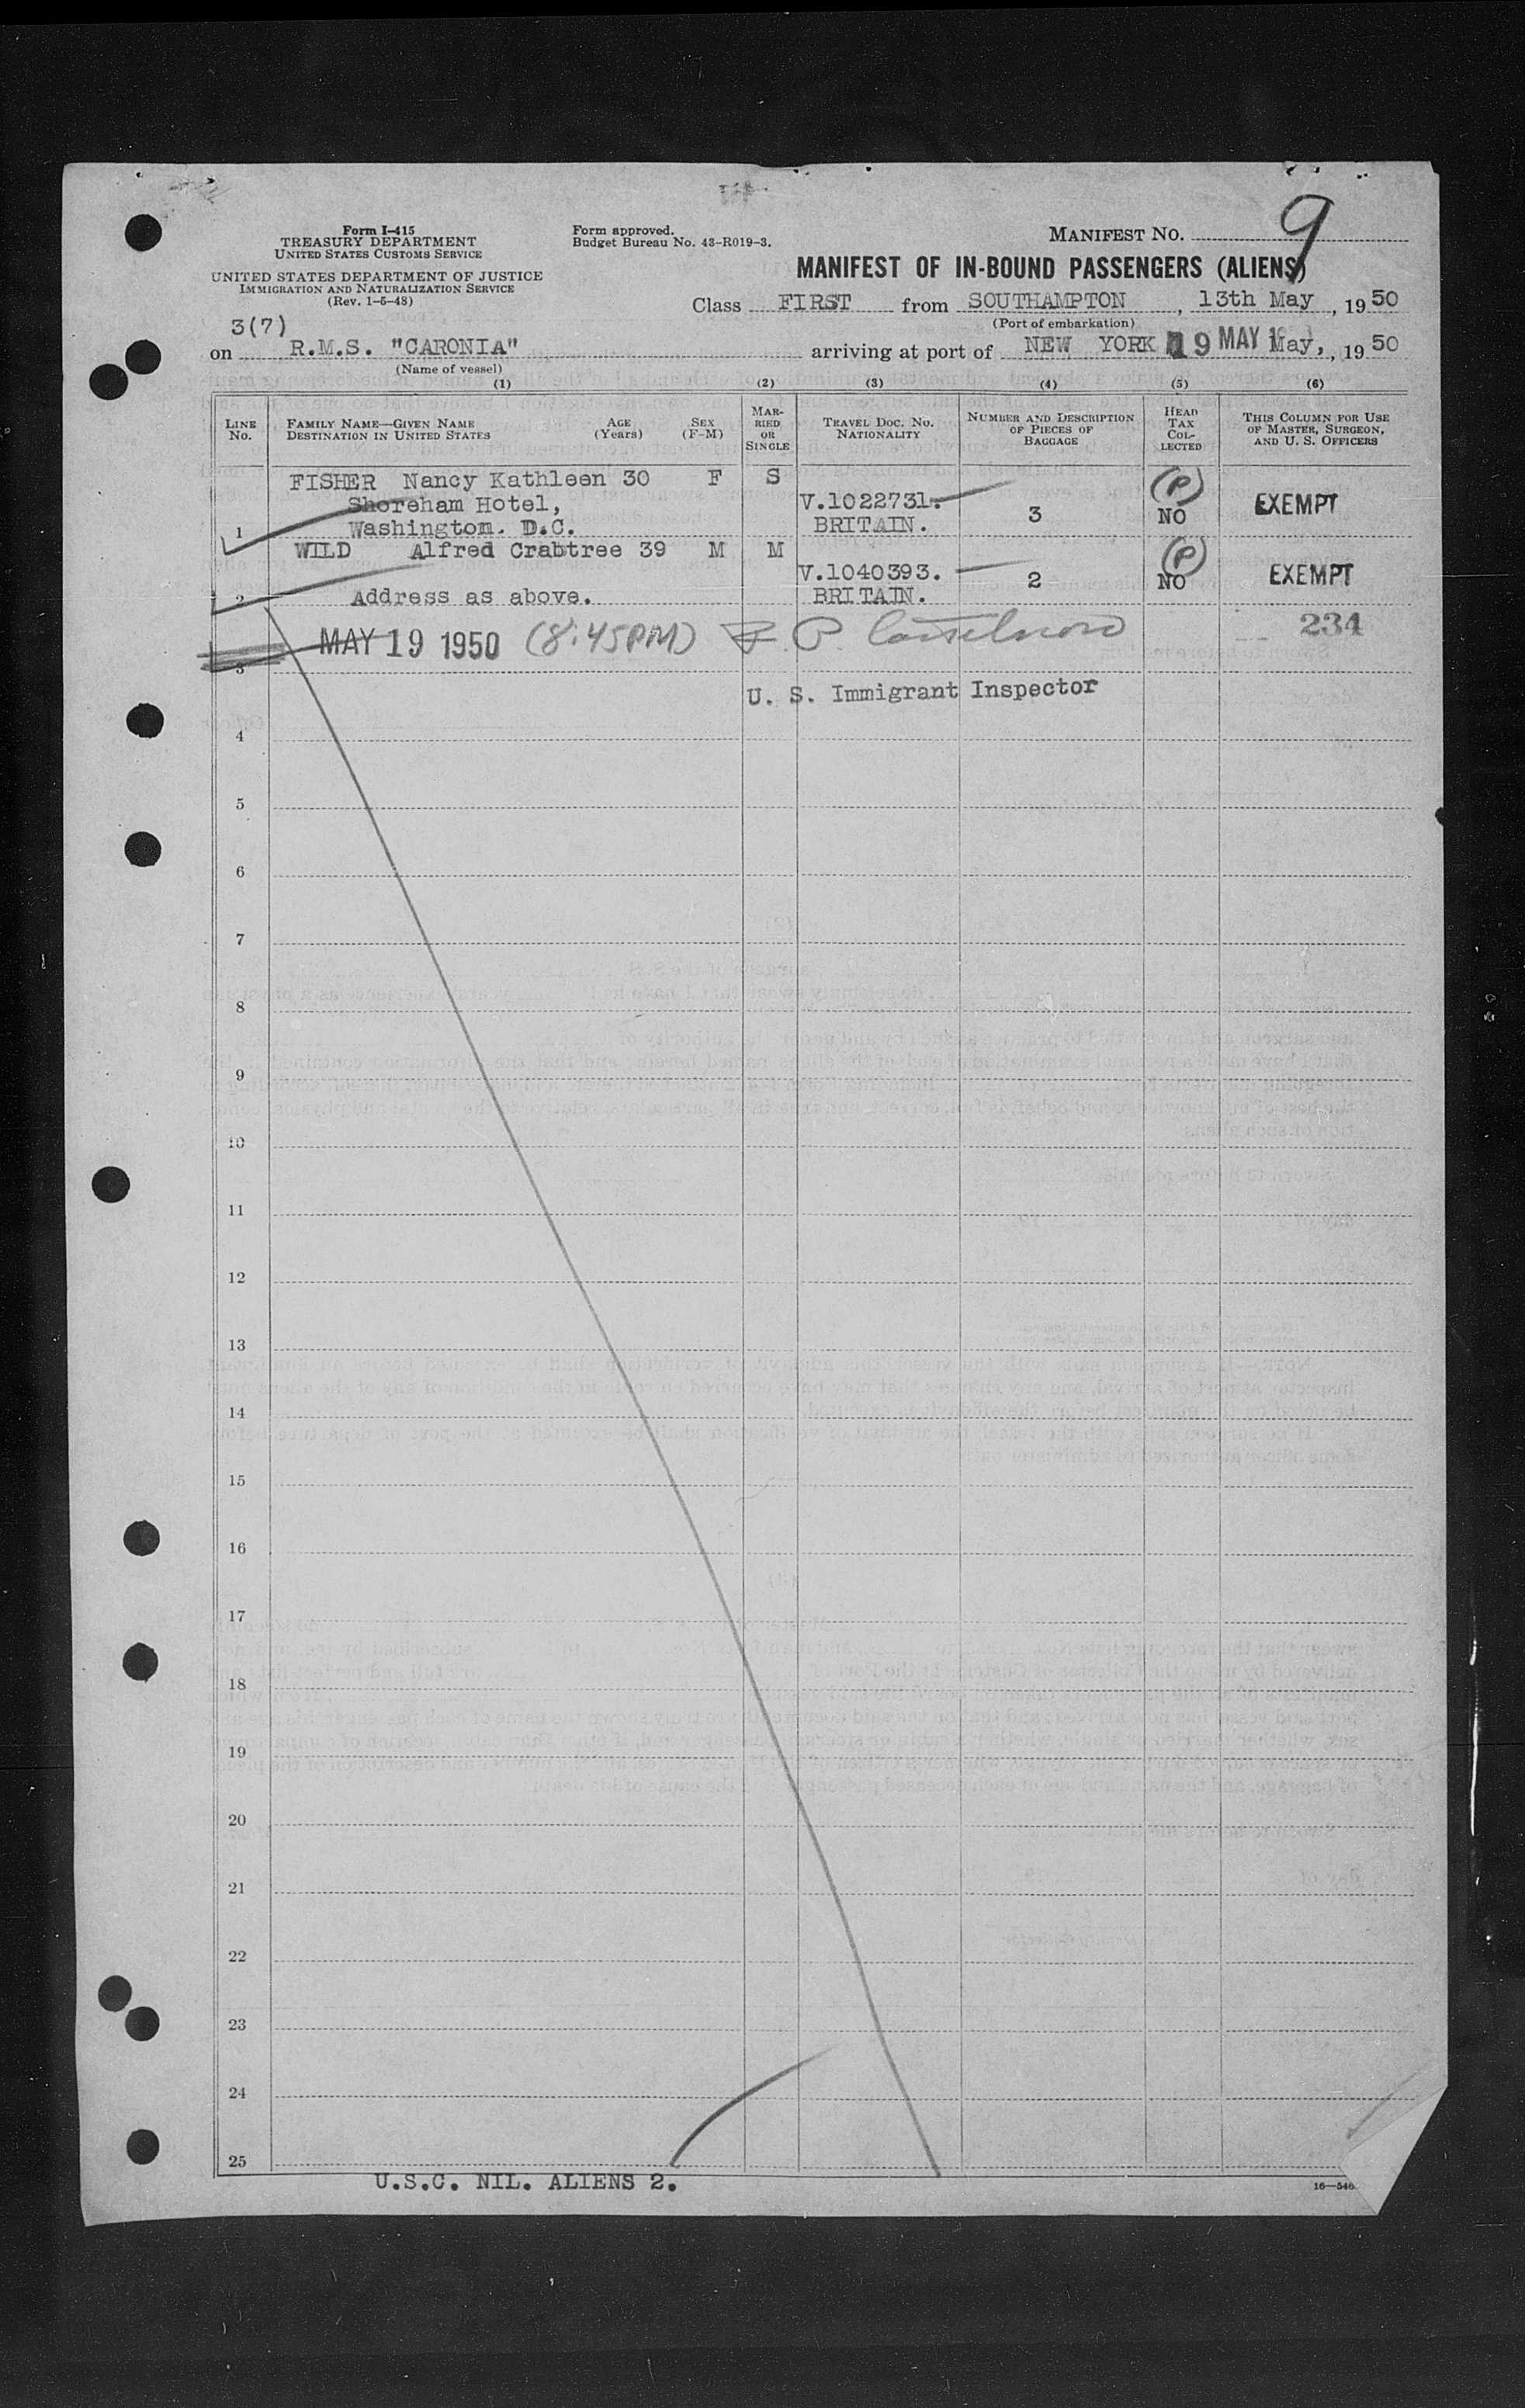 Form I-415
TREASURY DEPARTMENT
UNITED STATES CUSTOMS SERVICE
UNITED STATES DEPARTMENT OF JUSTICE
IMMIGRATION AND NATURALIZATION SERVICE
(Rev. 1-5-48)
Form approved.
Budget Bureau No. 43-R019-3.
MANIFEST NO. 9
MANIFEST OF IN-BOUND PASSENGERS (ALIENS)
Class FIRST from SOUTHAMPTON, 13th May, 1950
(Port of embarkation)
3(7)
on R.M.S. "CARONIA" arriving at port of NEW YORK 19 MAY May, 1950
(Name of vessel)
(1) (2) (3) (4) (5) (6)
LINE NO. FAMILY NAME—GIVEN NAME DESTINATION IN UNITED STATES AGE (Years) SEX (F-M) MARRIED OR SINGLE TRAVEL DOC. NO. NATIONALITY NUMBER AND DESCRIPTION OF PIECES OF BAGGAGE HEAD TAX COLLECTED THIS COLUMN FOR USE OF MASTER, SURGEON, AND U. S. OFFICERS
FISHER Nancy Kathleen 30 F S (P)
Shoreham Hotel, V.1022731. 3 NO EXEMPT
1 Washington. D.C. BRITAIN.
WILD Alfred Crabtree 39 M M (P)
V.1040393. 2 NO EXEMPT
2 Address as above. BRITAIN.
3 MAY 19 1950 (8:45PM) 234
U. S. Immigrant Inspector
4
5
6
7
8
9
10
11
12
13
14
15
16
17
18
19
20
21
22
23
24
25
U.S.C. NIL. ALIENS 2.
16—546